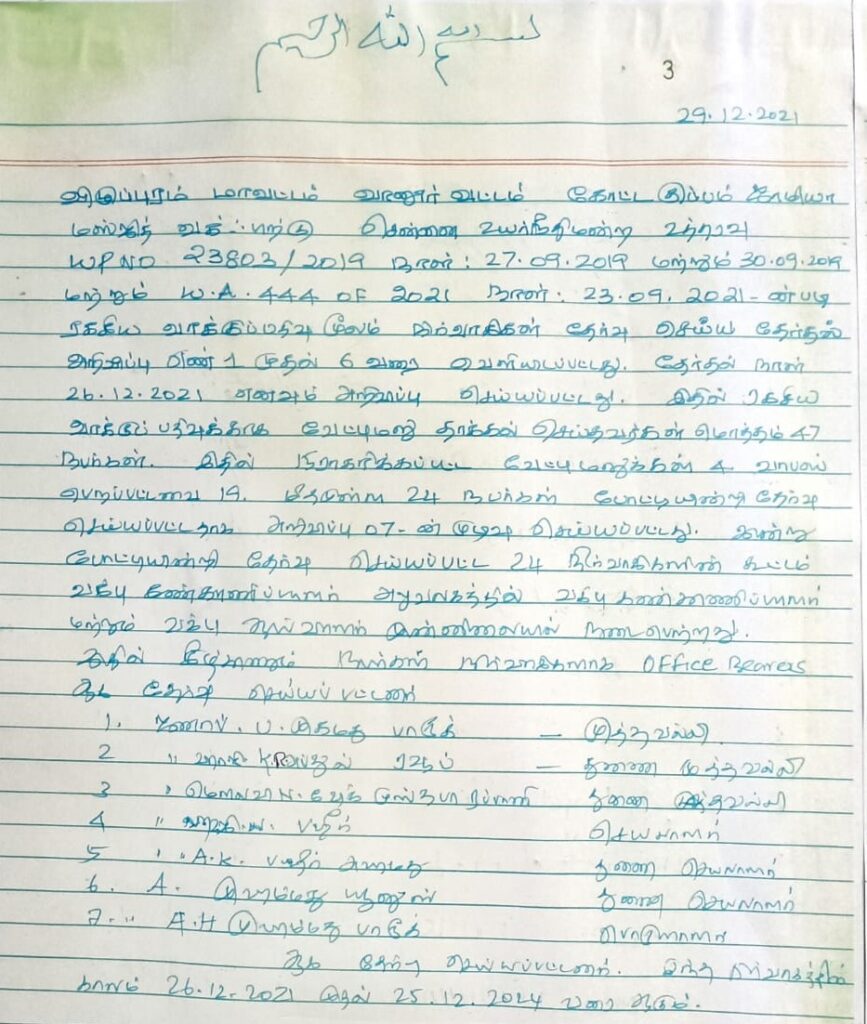 بسم الله الرحيم
3
29.12.2021
விழுப்புரம் மாவட்டம் வானூர் வட்டம் கோட்டகுப்பம் ஜாமியா
மஸ்ஜித் வக்ஃபிற்கு சென்னை உயர்நீதிமன்ற உத்தரவு
W.P NO 23803/2019 நாள் : 27.09.2019 மற்றும் 30.09.2019
மற்றும் W.A. 444 OF 2021 நாள் : 23.09.2021-ன்படி
ரகசிய வாக்குப்பதிவு மூலம் நிர்வாகிகள் தேர்வு செய்ய தேர்தல்
அறிவிப்பு எண் 1 முதல் 6 வரை வெளியிடப்பட்டது. தேர்தல் நாள்
26.12.2021 எனவும் அறிவிப்பு செய்யப்பட்டது. இதில் ரகசிய
வாக்குப்பதிவுக்காக வேட்புமனு தாக்கல் செய்தவர்கள் மொத்தம் 47
நபர்கள். இதில் நிராகரிக்கப்பட்ட வேட்புமனுக்கள் 4 வாபஸ்
பெறப்பட்டவை 19. மீதமுள்ள 24 நபர்கள் போட்டியின்றி தேர்வு
செய்யப்பட்டதாக அறிவிப்பு 07-ன் முடிவு செய்யப்பட்டது. இன்று
போட்டியின்றி தேர்வு செய்யப்பட்ட 24 நிர்வாகிகளின் கூட்டம்
வக்பு கண்காணிப்பாளர் அலுவலகத்தில் வக்பு கண்காணிப்பாளர்
மற்றும் வக்பு ஆய்வாளர் முன்னிலையில் நடைபெற்றது.
அதில் கீழ்காணும் நபர்கள் நிர்வாகிகளாக OFFICE Bearers
ஆக தேர்வு செய்யப்பட்டனர்
1. ஜனாப். ப. முகமது பாரூக் – முத்தவல்லி
2 " ஹாஜி K. அப்துல் ரவூப் – துணை முத்தவல்லி
3 " மௌலவி N. முஸ்தபா ரப்பானி துணை முத்தவல்லி
4 " பஷீர் செயலாளர்
5 " A.K. பஷீர் அகமது துணை செயலாளர்
6. A. முஹம்மது யூனுஸ் துணை செயலாளர்
7. " A.H முஹம்மது பாரூக் பொருளாளர்
ஆக தேர்வு செய்யப்பட்டனர். இந்த நிர்வாகத்தின்
காலம் 26.12.2021 முதல் 25.12.2024 வரை ஆகும்.